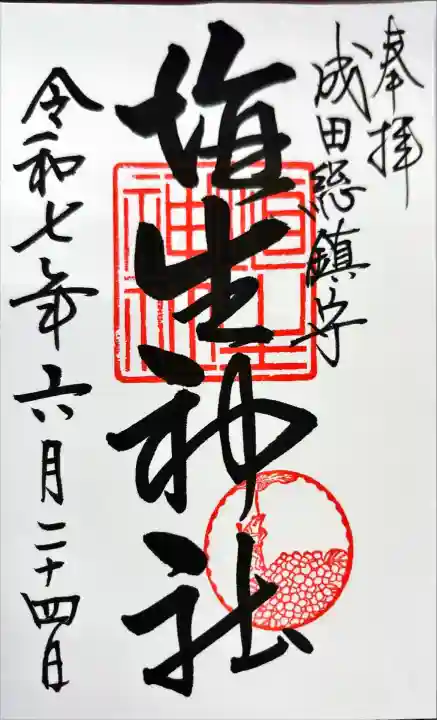 奉拝
成田総鎮守
埴生神社
令和七年六月二十四日